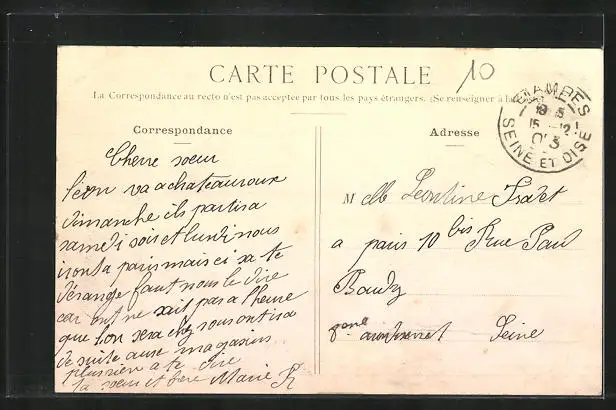 CARTE POSTALE
10
La Correspondance au recto n'est pas acceptée par tous les pays étrangers. (Se renseigner à la
ETAMPES
15 -12
SEINE ET OISE
Correspondance
Adresse
Cherre soeur
Léon va a chateauroux
dimanche ils partira
samedi soir et lundi nous
iront a paris mais ci sa te
dérange faut nous le dire
car ont ne sait pas a lheure
que lon sera chez vous ont ira
de suite aux magasins
plus rien a te dire
ta soeur et frere Marie R
M elle Leontine
a paris 10 bis Rue Paul
Baudry
Seine